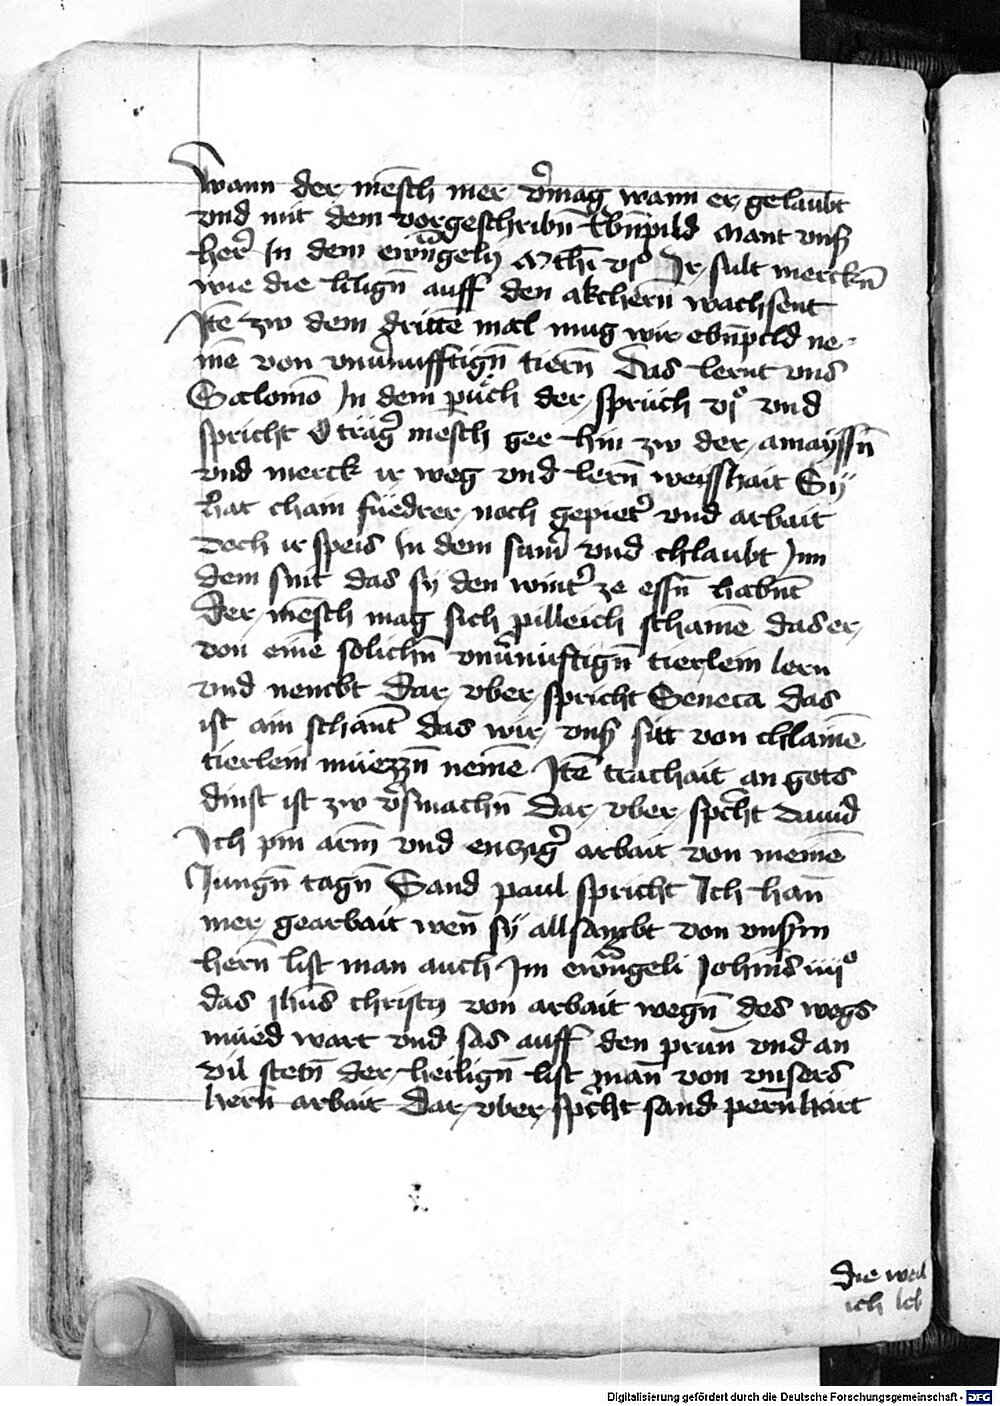 Wann der mēsch mer v̉mag wann er gelaubt
vnd mit dem vorgeschribn̄ Ebn̄pild Mant vnß
her̉ In dem ewn̄gelÿ Mthī vjº Ir sült merckn̄
wie die liligñ auff den akchern̄ wachsent
Itē zw dem drittē mal mug wir ebn̄pild ne-
mē von vnủnufftign̄ tiern̄ Das lernt vns
Salomō In dem půch der sprüch vjº vnd
spricht O träg̉ mēsch gee hin zw der amayssn̄
vnd merck ir weg vnd lern̄ weisshait Sÿ
hat chain füedrer noch gepiet̉ vnd arbait
Doch ir speis In dem sum̉ vnd chlaubt Inn
dem snit das sy den wint̉ ze essn̄ habnt̄
Der mēsch mag sich pilleich schamē das er
von einē solichn̄ vnủnuftign̄ tierlein lern
vnd nembt Dar vber spricht Seneca das
ist ain schant̄ das wir vnß sitt von chlainē
tierlein müezzn̄ nemē Itē trachait an gots
dinst ist zw v̉smachn̄ Dar vber sp̉cht Dauid
Ich pin arm̄ vnd enczig̉ arbait von meinē
Jungn̄ tagn̄ Sand paul spricht Ich han̄
mer gearbait wen̄ sÿ allsambt von vnsn̉m
hern̄ list man auch Im ewn̄geli Johīs iiijº
das jhūs christꝯ von arbait wegn̄ des wegs
müed wart vnd sas auff den prun̄ vnd an
vil stetn̄ der heilign̄ list man̄ von vnsers
hern̄ arbait Dar vber sp̉cht sand pern̄hart
Die weil
ich leb
Digitalisierung gefördert durch die Deutsche Forschungsgemeinschaft - DFG